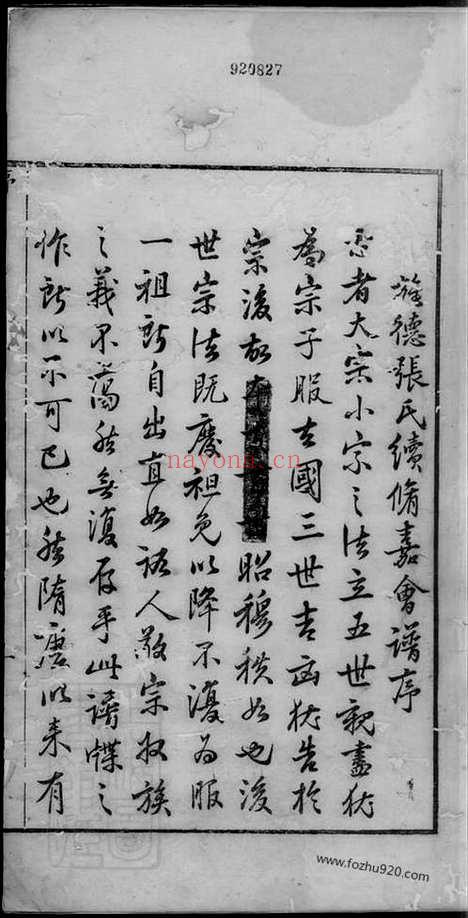 920827
旌德張氏續脩嘉會譜序
古者大宗小宗之法立五世親盡猶
為宗子服去國三世吉凶猶告於
宗後故
昭穆秩如也後
世宗法既廢祖免以降不復為服
一祖所自出直如路人敬宗收族
之義不蔼然無復存乎此譜牒之
作所以不可已也然隋唐以来有
nayona.cn
www.fozhu920.com